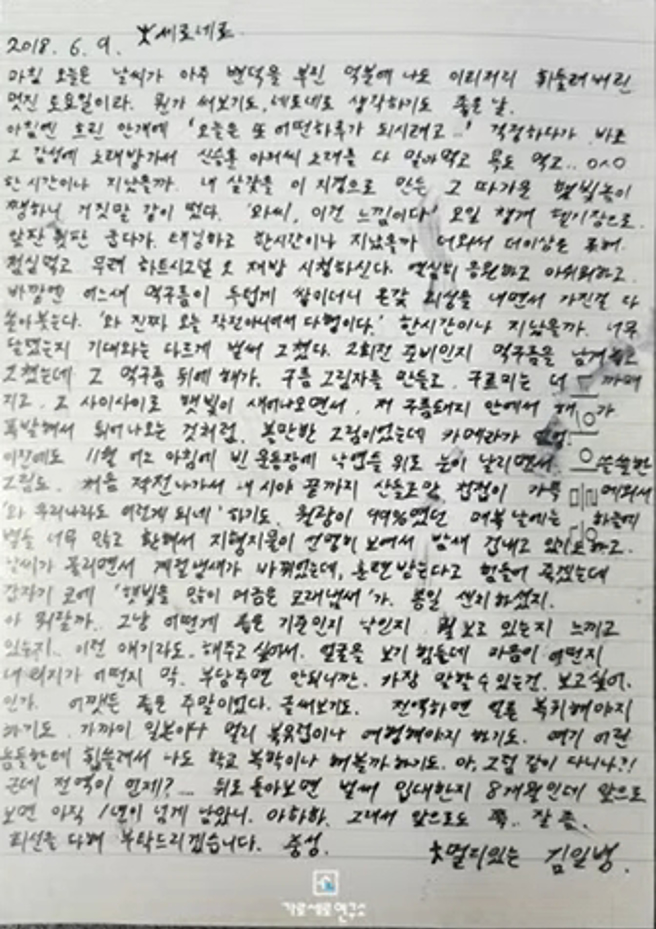 2018. 6. 9. 美세로네로.
아침 오늘은 날씨가 아주 변덕을 부린 덕분에 나도 이리저리 휘둘려버린
멋진 토요일이라. 뭔가 써보기도, 네로네로 생각하기도 좋은 날.
아침엔 흐린 안개에 '오늘은 또 어떤하루가 되시려고..' 걱정하다가 바로
그 감성에 노래방가서 신승훈 아저씨 노래를 다 말아먹고 목도 먹고.. ㅇㅅㅇ
한시간이나 지났을까. 내 살갗을 이 지경으로 만든 그 따가운 햇빛놈이
쨍하니 거짓말 같이 떴다. '와씨, 이건 느낌이다' 요일 챙겨 연기장으로.
앞판 뒷판 굽다가. 태닝하고 한시간이나 지났을까 더워서 더이상은 못해.
점심먹고 무려 하트시그널 2 재방 시청하신다. 열심히 응원하고 아쉬워하고.
바깥엔 어느새 먹구름이 두텁게 쌓이더니 온갖 괴성을 내면서 가진걸 다
쏟아붓는다. '와 진짜 오늘 작전아니어서 다행이다.' 한시간이나 지났을까. 너무
달랬는지 기대와는 다르게 벌써 그쳤다. 2회전 준비인지 먹구름을 남겨두고
그쳤는데 그 먹구름 뒤에 해가. 구름 그림자를 만들고. 구르미는 더 까매
지고. 그 사이사이로 햇빛이 새어나오면서. 저 구름돼지 안에서 해가
폭발해서 튀어나오는 것처럼. 볼만한 그림이었는데 카메라가 없넹.
이전에도 11월 어느 아침에 빈 운동장에 낙엽들 위로 눈이 날리면서. 쓸쓸한
그림도. 처음 작전나가서 내 시야 끝까지 산들로만 첩첩이 가득 메워서
'와 우리나라도 이렇게 되네' 하기도. 월광이 99%였던 매복 날에는 하늘에
별들 너무 많고 환해서 지형지물이 선명히 보여서 밤새 겁내고 있기도하고.
날씨가 풀리면서 계절냄새가 바뀌었는데, 훈련받는다고 힘들어 죽겠는데
갑자기 코에 '햇빛을 많이 머금은 모래냄새'가. 봄일 센치하셨지.
아 뭐랄까.. 그냥 어떻게 좁은 기준인지 낙인지 뭘 보고 있는지 느끼고
있는지.. 이런 얘기라도. 해주고 싶어서. 얼굴을 보기 힘든데 마음이 어떤지
내 의지가 어떤지 막. 부담주면 안되니깐. 가장 말할 수 있는건. 보고싶어.
인가. 어쨌든 좁은 주말이었다. 글써보기도. 전역하면 얼른 복귀해야지
하기도. 가까이 일본이나 멀리 북유럽이나 여행해야지 하기도. 여기 어린
놈들한테 휩쓸려서 나도 학교 복학이나 해볼까하기도. 아, 그럼 같이 다니나?!
근데 전역이 언제?.... 뒤로 돌아보면 벌써 입대한지 8개월인데 앞으로
보면 아직 1년이 넘게 남았네. 아하하. 그래서 앞으로도 쭉.. 잘 좀.
최선을 다해 부탁드리겠습니다. 충성.
美멀리있는 김일병.
미
성
미
필
가로세로연구소